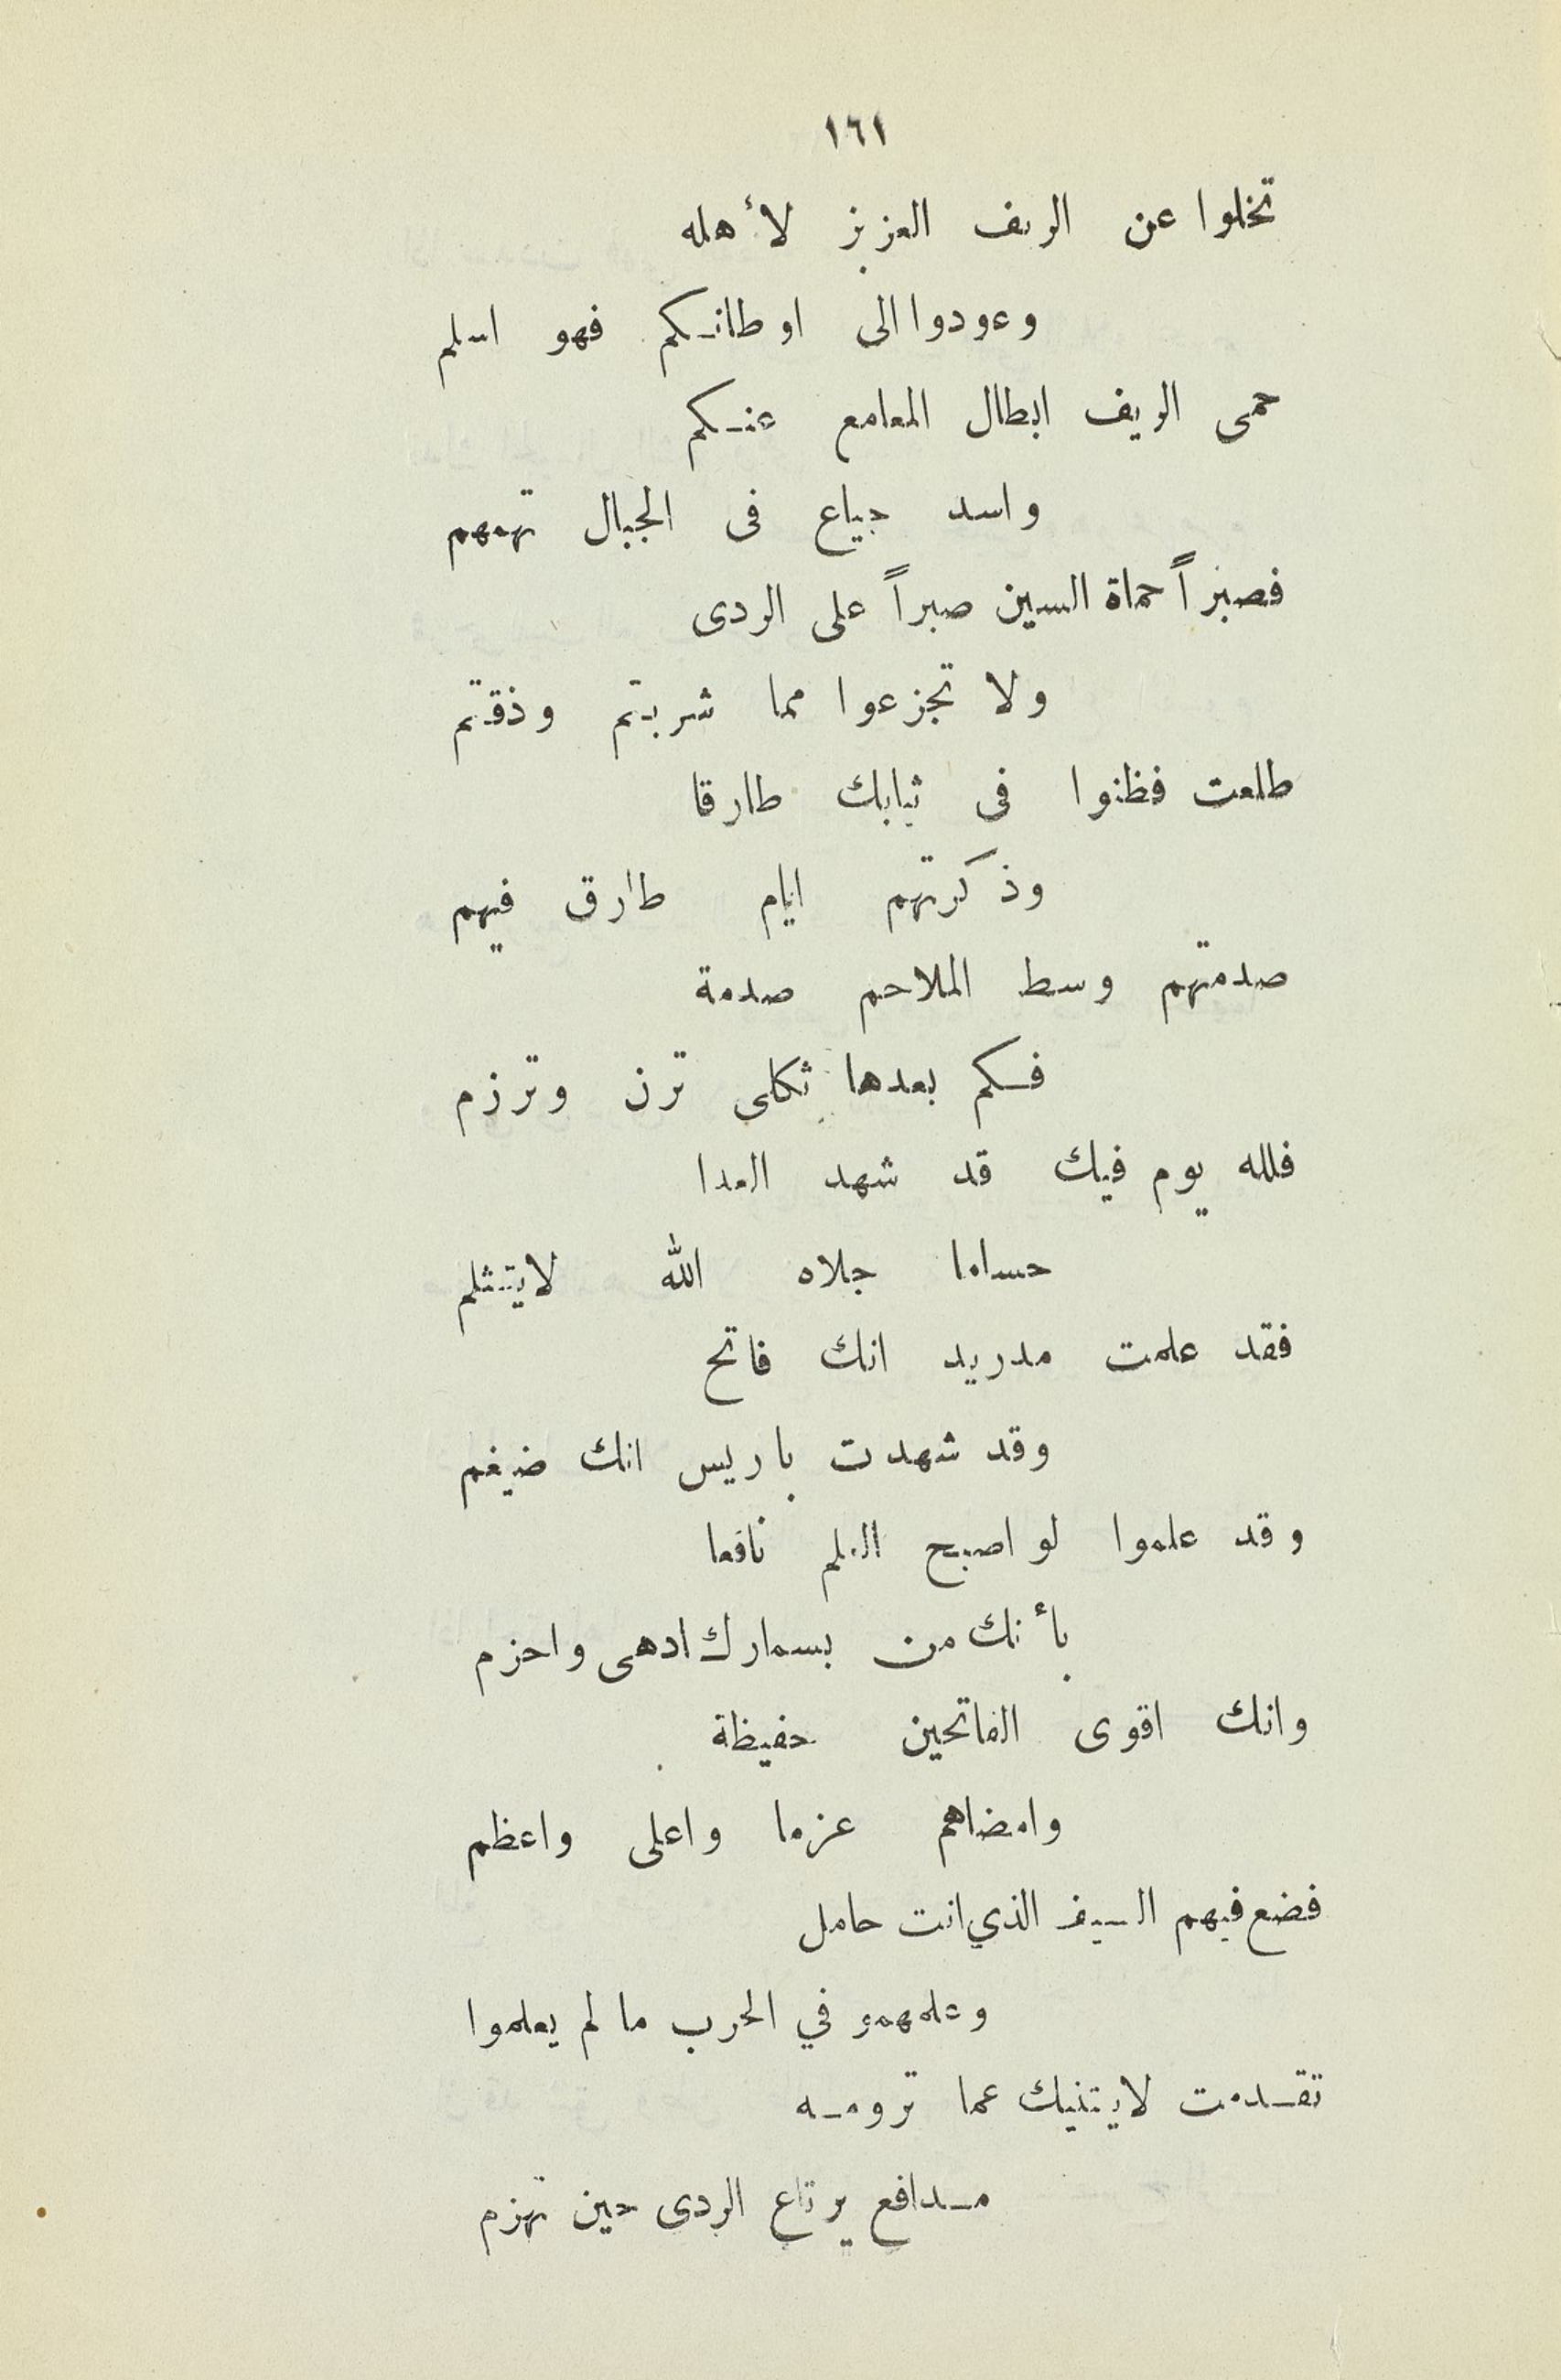 ١٦١
تخلوا عن الريف العزيز لأهله
وعودوا الى اوطانكم فهو اسلم
حمى الريف ابطال المعامع عنكم
واسد جياع فى الجبال تهمهم
فصبراً حماة السين صبراً على الردى
ولا تجزعوا مما شربتم وذقتم
طلعت فظنوا فى ثيابك طارقا
وذكرتهم ايام طارق فيهم
صدمتهم وسط الملاحم صدمة
فكم بعدها ثكلى ترن وترزم
فلله يوم فيك قد شهد العدا
حساما جلاه الله لايتثلم
فقد علمت مدريد انك فاتح
وقد شهدت باريس انك ضيغم
وقد علموا لو اصبح العلم نافعا
بأنك من بسمارك ادهى واحزم
وانك اقوى الفاتحين حفيظة
وامضاهم عزما واعلى واعظم
فضع فيهم السيف الذي انت حامل
وعلمهمو في الحرب ما لم يعلموا
تقدمت لايثنيك عما ترومه
مدافع يرتاع الردى حين تهزم